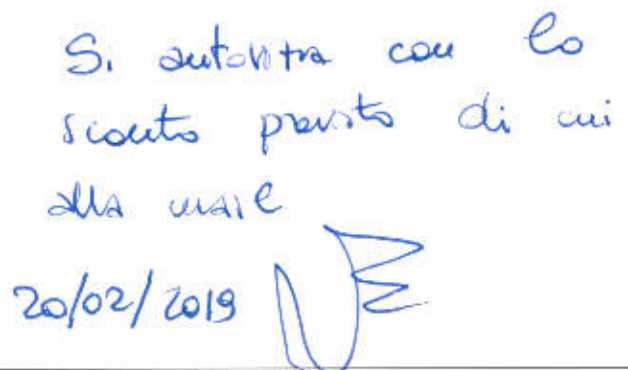 Si autorizza con lo
sconto previsto di cui
alla mail
20/02/2019